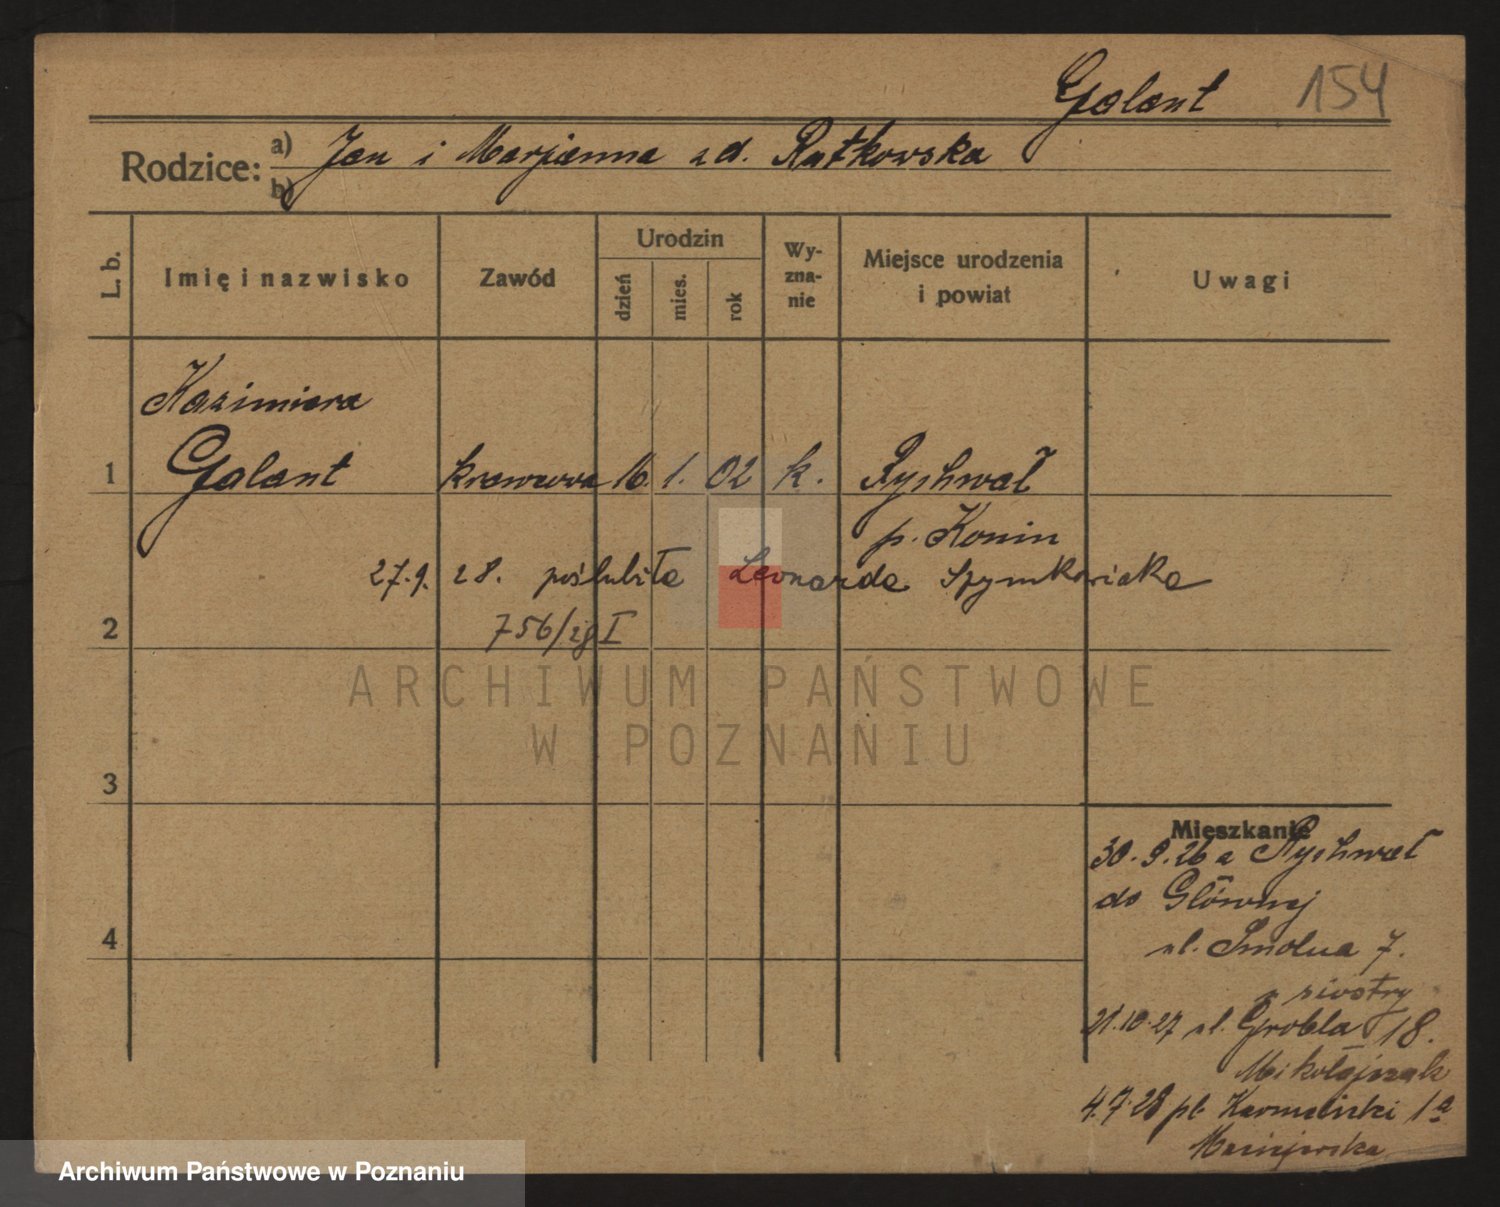 Galant 154
Rodzice: a) Jan i Marjanna zd. Ratkowska
b)
L. b. Imię i nazwisko Zawód Urodzin dzień mies. rok Wy-zna-nie Miejsce urodzenia i powiat Uwagi
Kazimiera
1 Galant krawcowa 16. 1. 02 k. Rychwał
p. Konin
27.9. 28. poślubiła Leonarda Szymkowiaka
2 756/zg I
ARCHIWUM PAŃSTWOWE
W POZNANIU
3
Mieszkanie
30.9.26 z Rychwał
do Głównej
4
ul. Smolna 7.
u siostry
21.10.27 ul. Grobla 18.
Mikołajczak
4.7.28 pl. Karmelicki 1a
Maciejewska
Archiwum Państwowe w Poznaniu